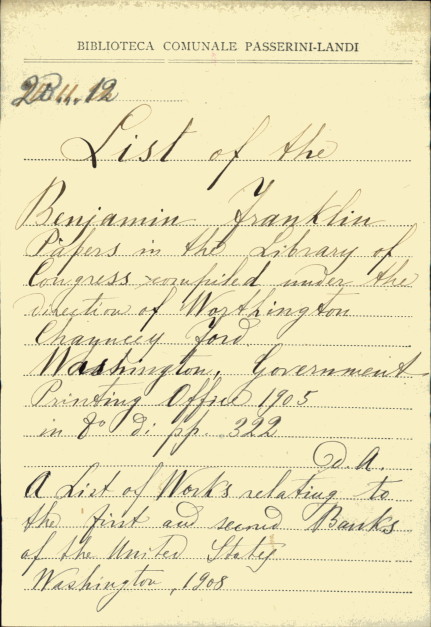 BIBLIOTECA COMUNALE PASSERINI-LANDI
List of the
Benjamin Franklin
Papers in the Library of
Congress compiled under the
direction of Worthington
Chauncey Ford
Washington, Government
Printing Office 1905
in 8º di pp. 322
A List of Works relating to
the first and second Banks
of the United States
Washington, 1908